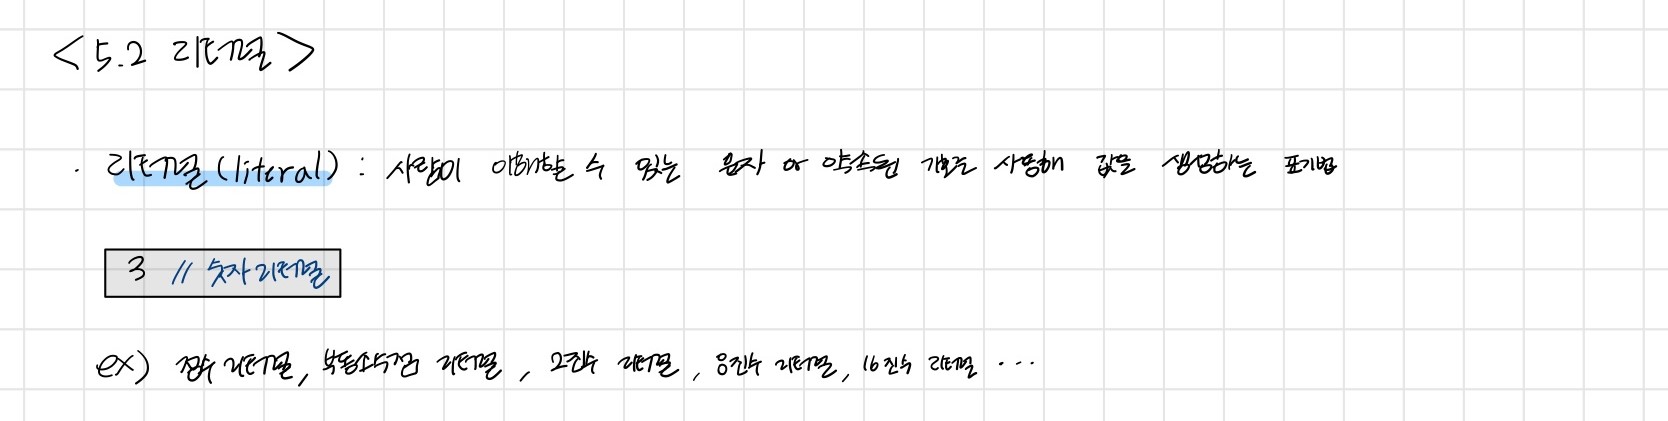 <5.2 리터럴>
· 리터럴(literal) : 사람이 이해할 수 있는 문자 or 약속된 기호를 사용해 값을 생성하는 표기법
3 // 숫자 리터럴
ex) 정수 리터럴, 부동소수점 리터럴, 2진수 리터럴, 8진수 리터럴, 16진수 리터럴 ...